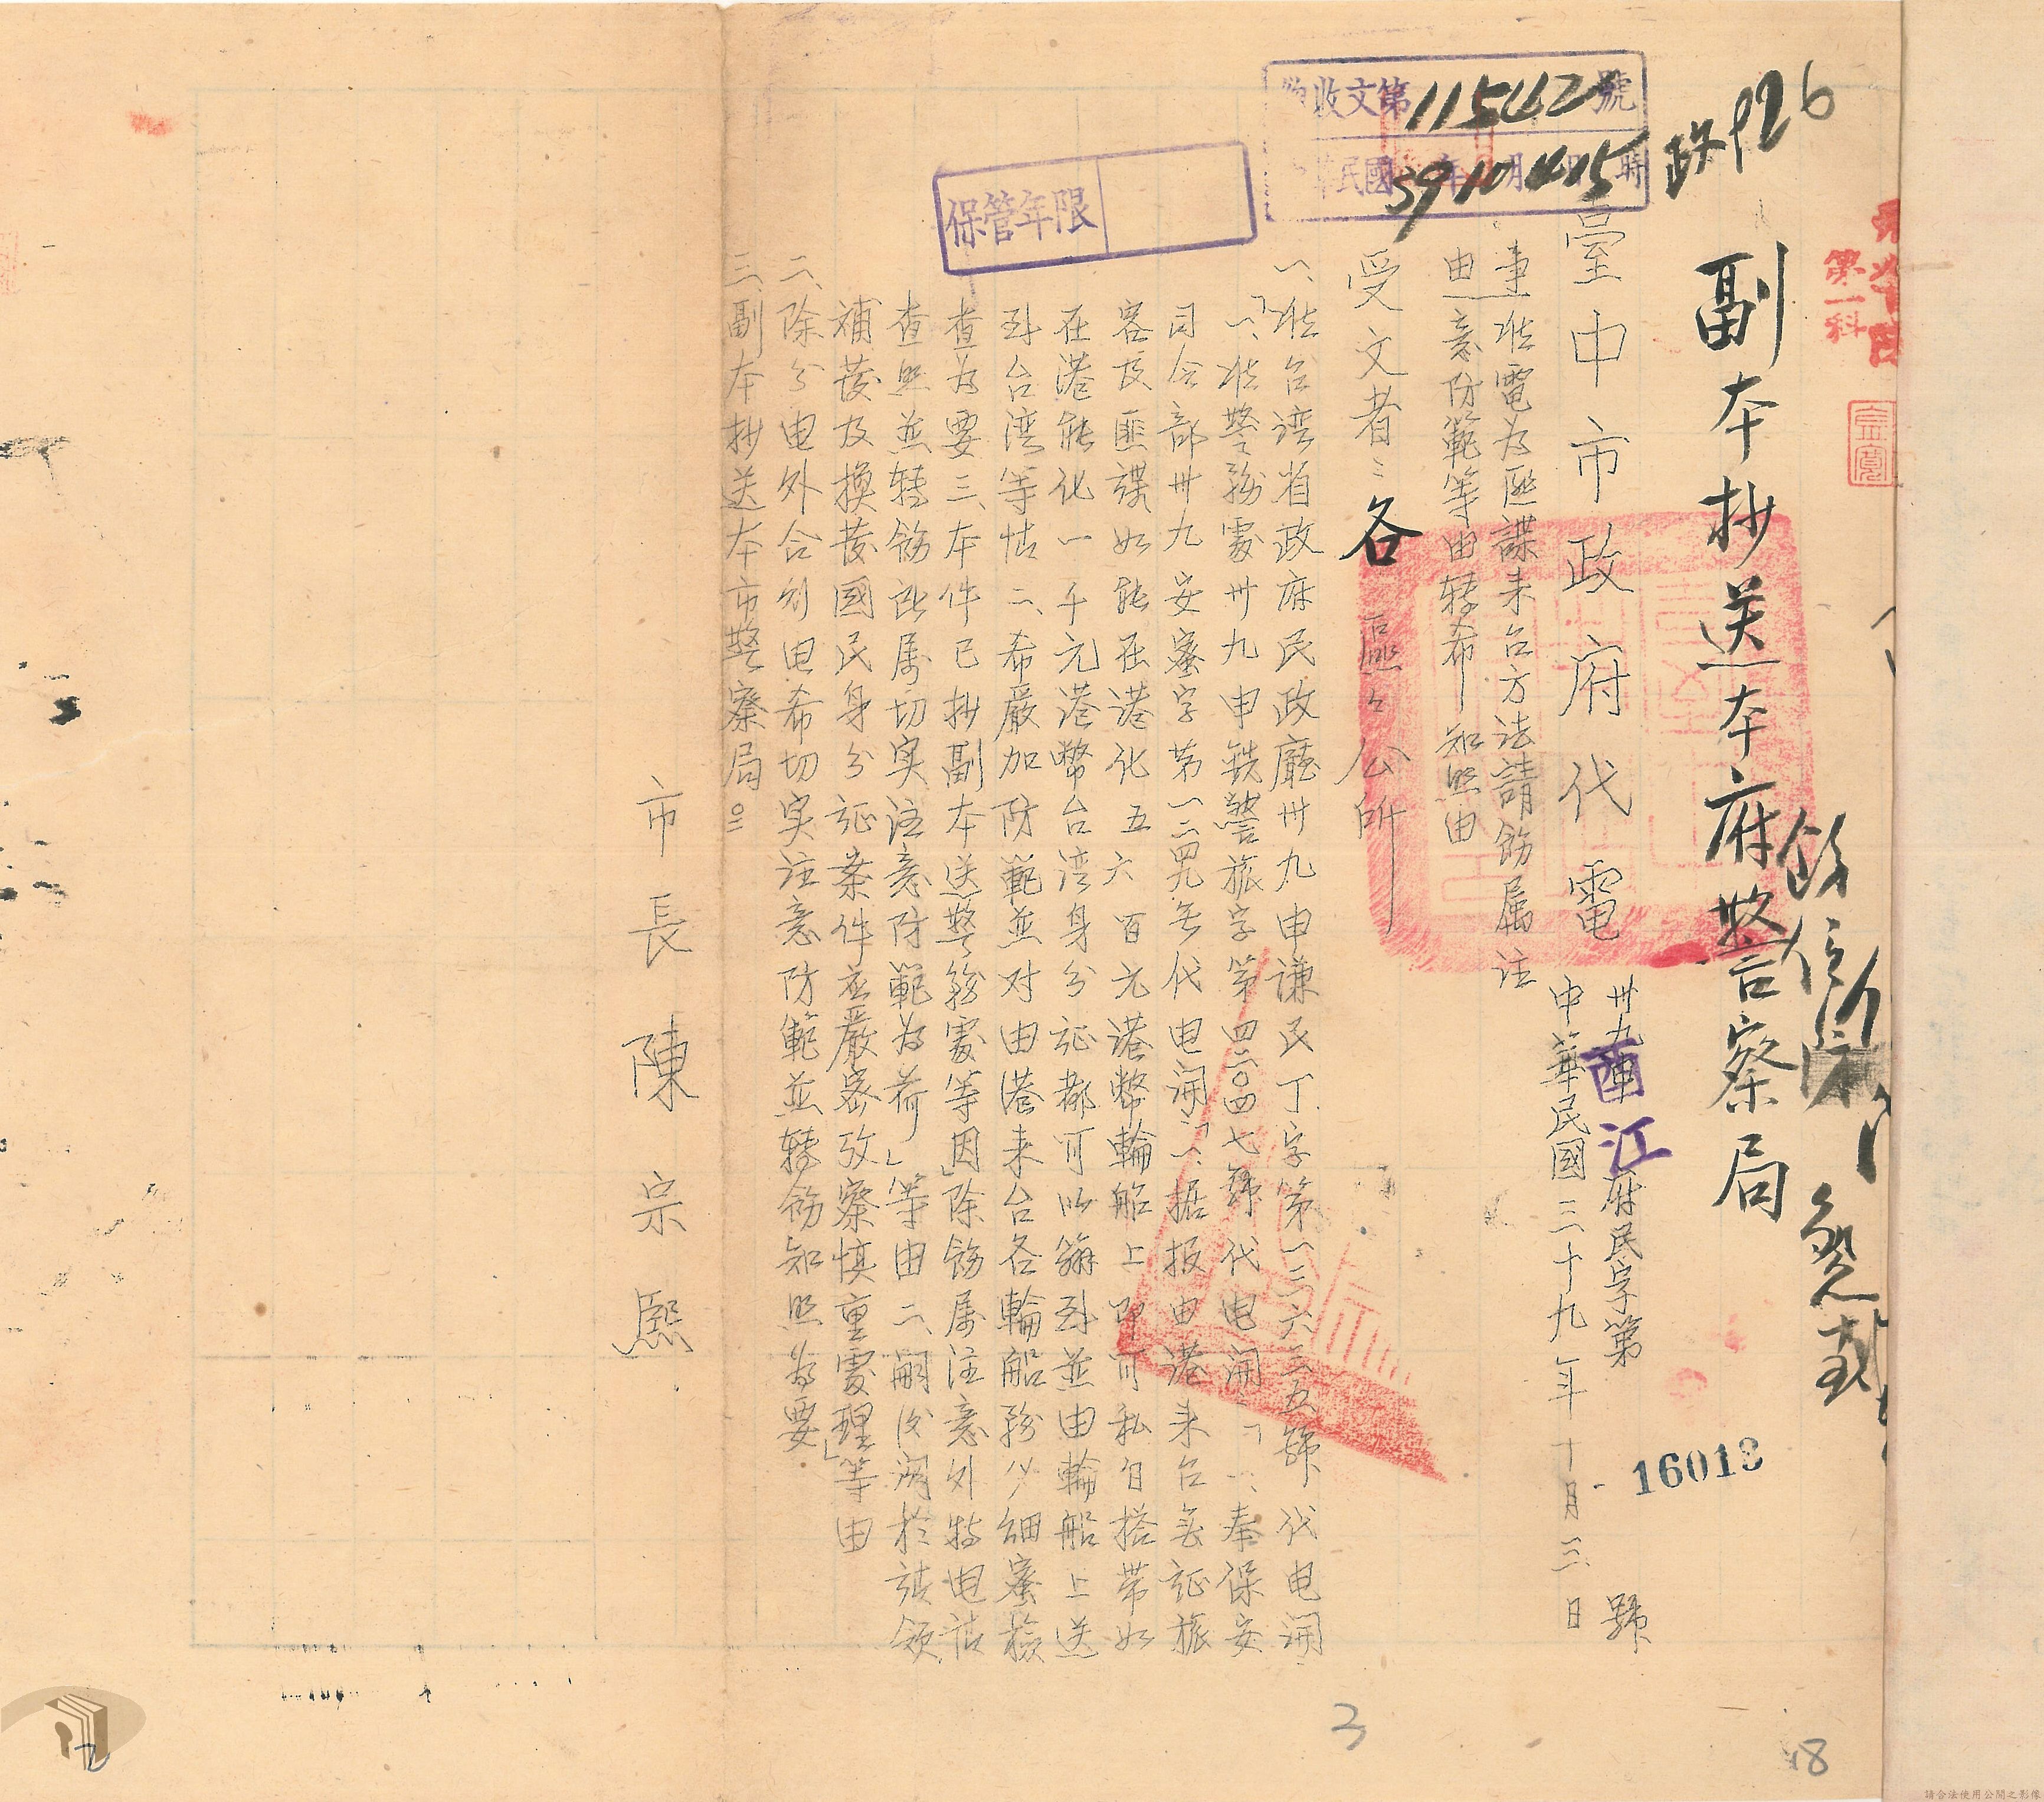 政926
收文第11542號
民國 年 月 時
39 10 4 15
保管年限
第一科
副本抄送本府警察局
臺中市政府代電
卅九酉江府民字第 號
16013
中華民國三十九年十月三日
事由 准電為匪諜来台方法請飭属注
意防範等由轉希 知照由
受文者:各區公所
一、准台湾省政府民政廳卅九申谦民丁字第一三六三五號代电開:
「一、准警務處卅九申銑警旅字第四二〇四七號代电開:「一、奉保安
司令部卅九安蜜字第一二四九号代电開「一、据报由港来台無証旅
客及匪諜如能在港化五六百元港幣輪船上即可私自搭带如
在港能化一千元港幣台湾身分証都可以辦到並由輪船上送
到台湾等情二、希嚴加防範並对由港来台各輪船務必細蜜檢
查為要三、本件已抄副本送警務處等因」除飭属注意外特电請
查照並轉飭所属切实注意防範為荷」等由二、嗣後関於請領
補發及換發國民身分証案件应嚴密攷察慎重處理」等由
二、除分电外合行电希切实注意防範並轉飭知照為要
三、副本抄送本市警察局
市長陳宗熙
3
18
2
請合法使用公開之影像